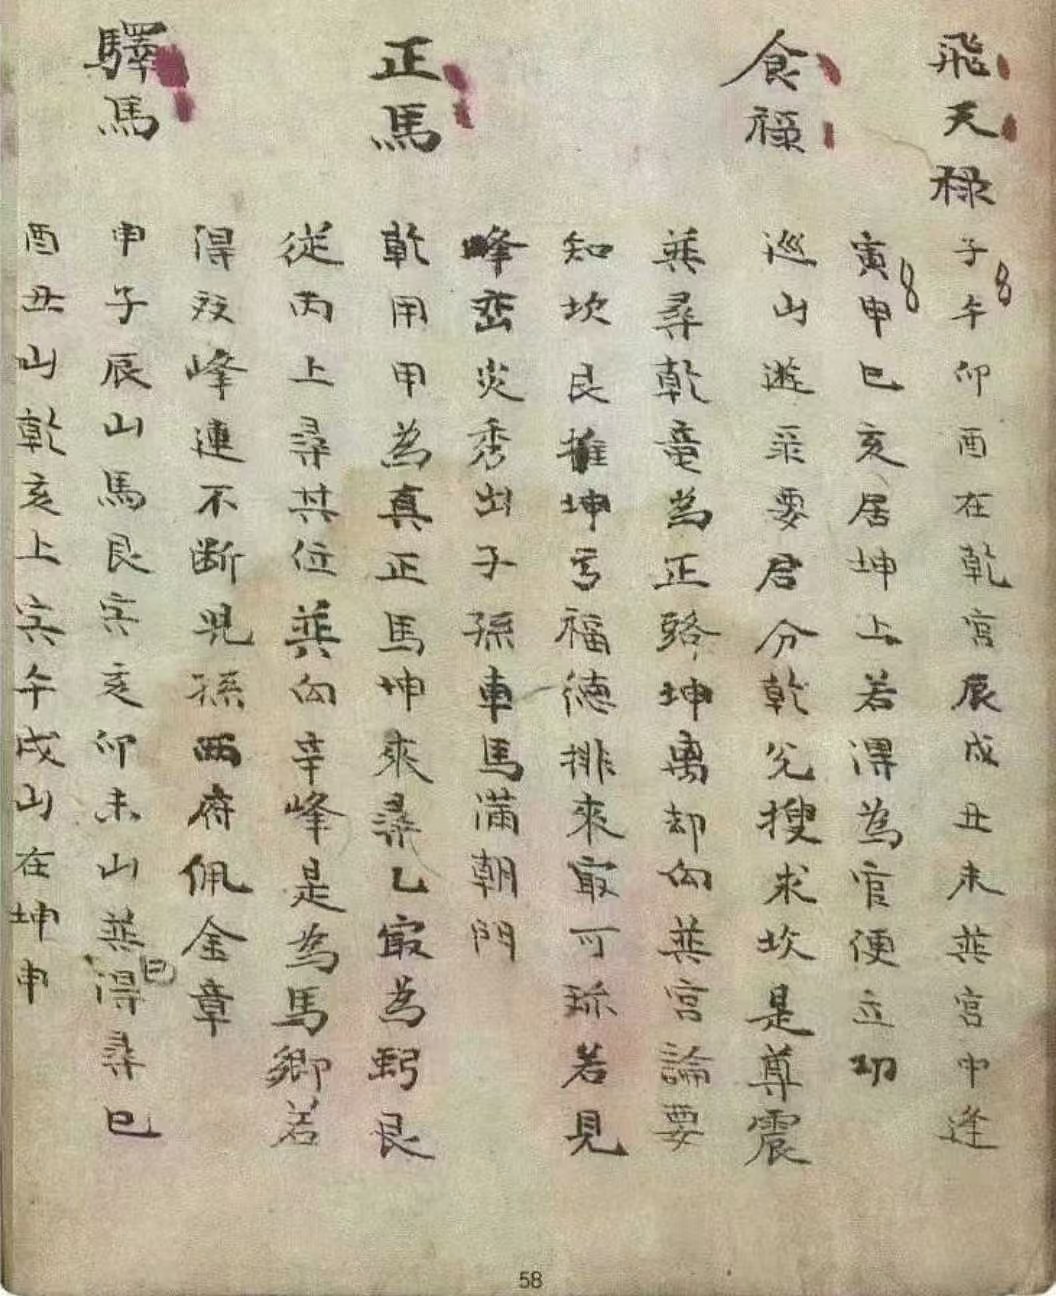 飛天祿 子午卯酉在乾宫辰戍丑未巽宫中逢
寅申巳亥居坤上若得為官便立功
食祿 巡山遊来要君分乾兊搜求坎是尊震
巽尋乾竜為正路坤离却向巽宫論要
知坎艮推坤亐福德排來最可跡若見
峰峦尖秀出子孫車馬滿朝門
正馬 乾用甲為真正馬坤來尋乙最為躬艮
從丙上尋其位巽向辛峰是為馬鄉若
得双峰連不断児孫两府佩金章
驛馬 申子辰山馬艮寅亥卯未山巽得尋巳
巳
酉丑山乾亥上寅午戍山在坤申
58